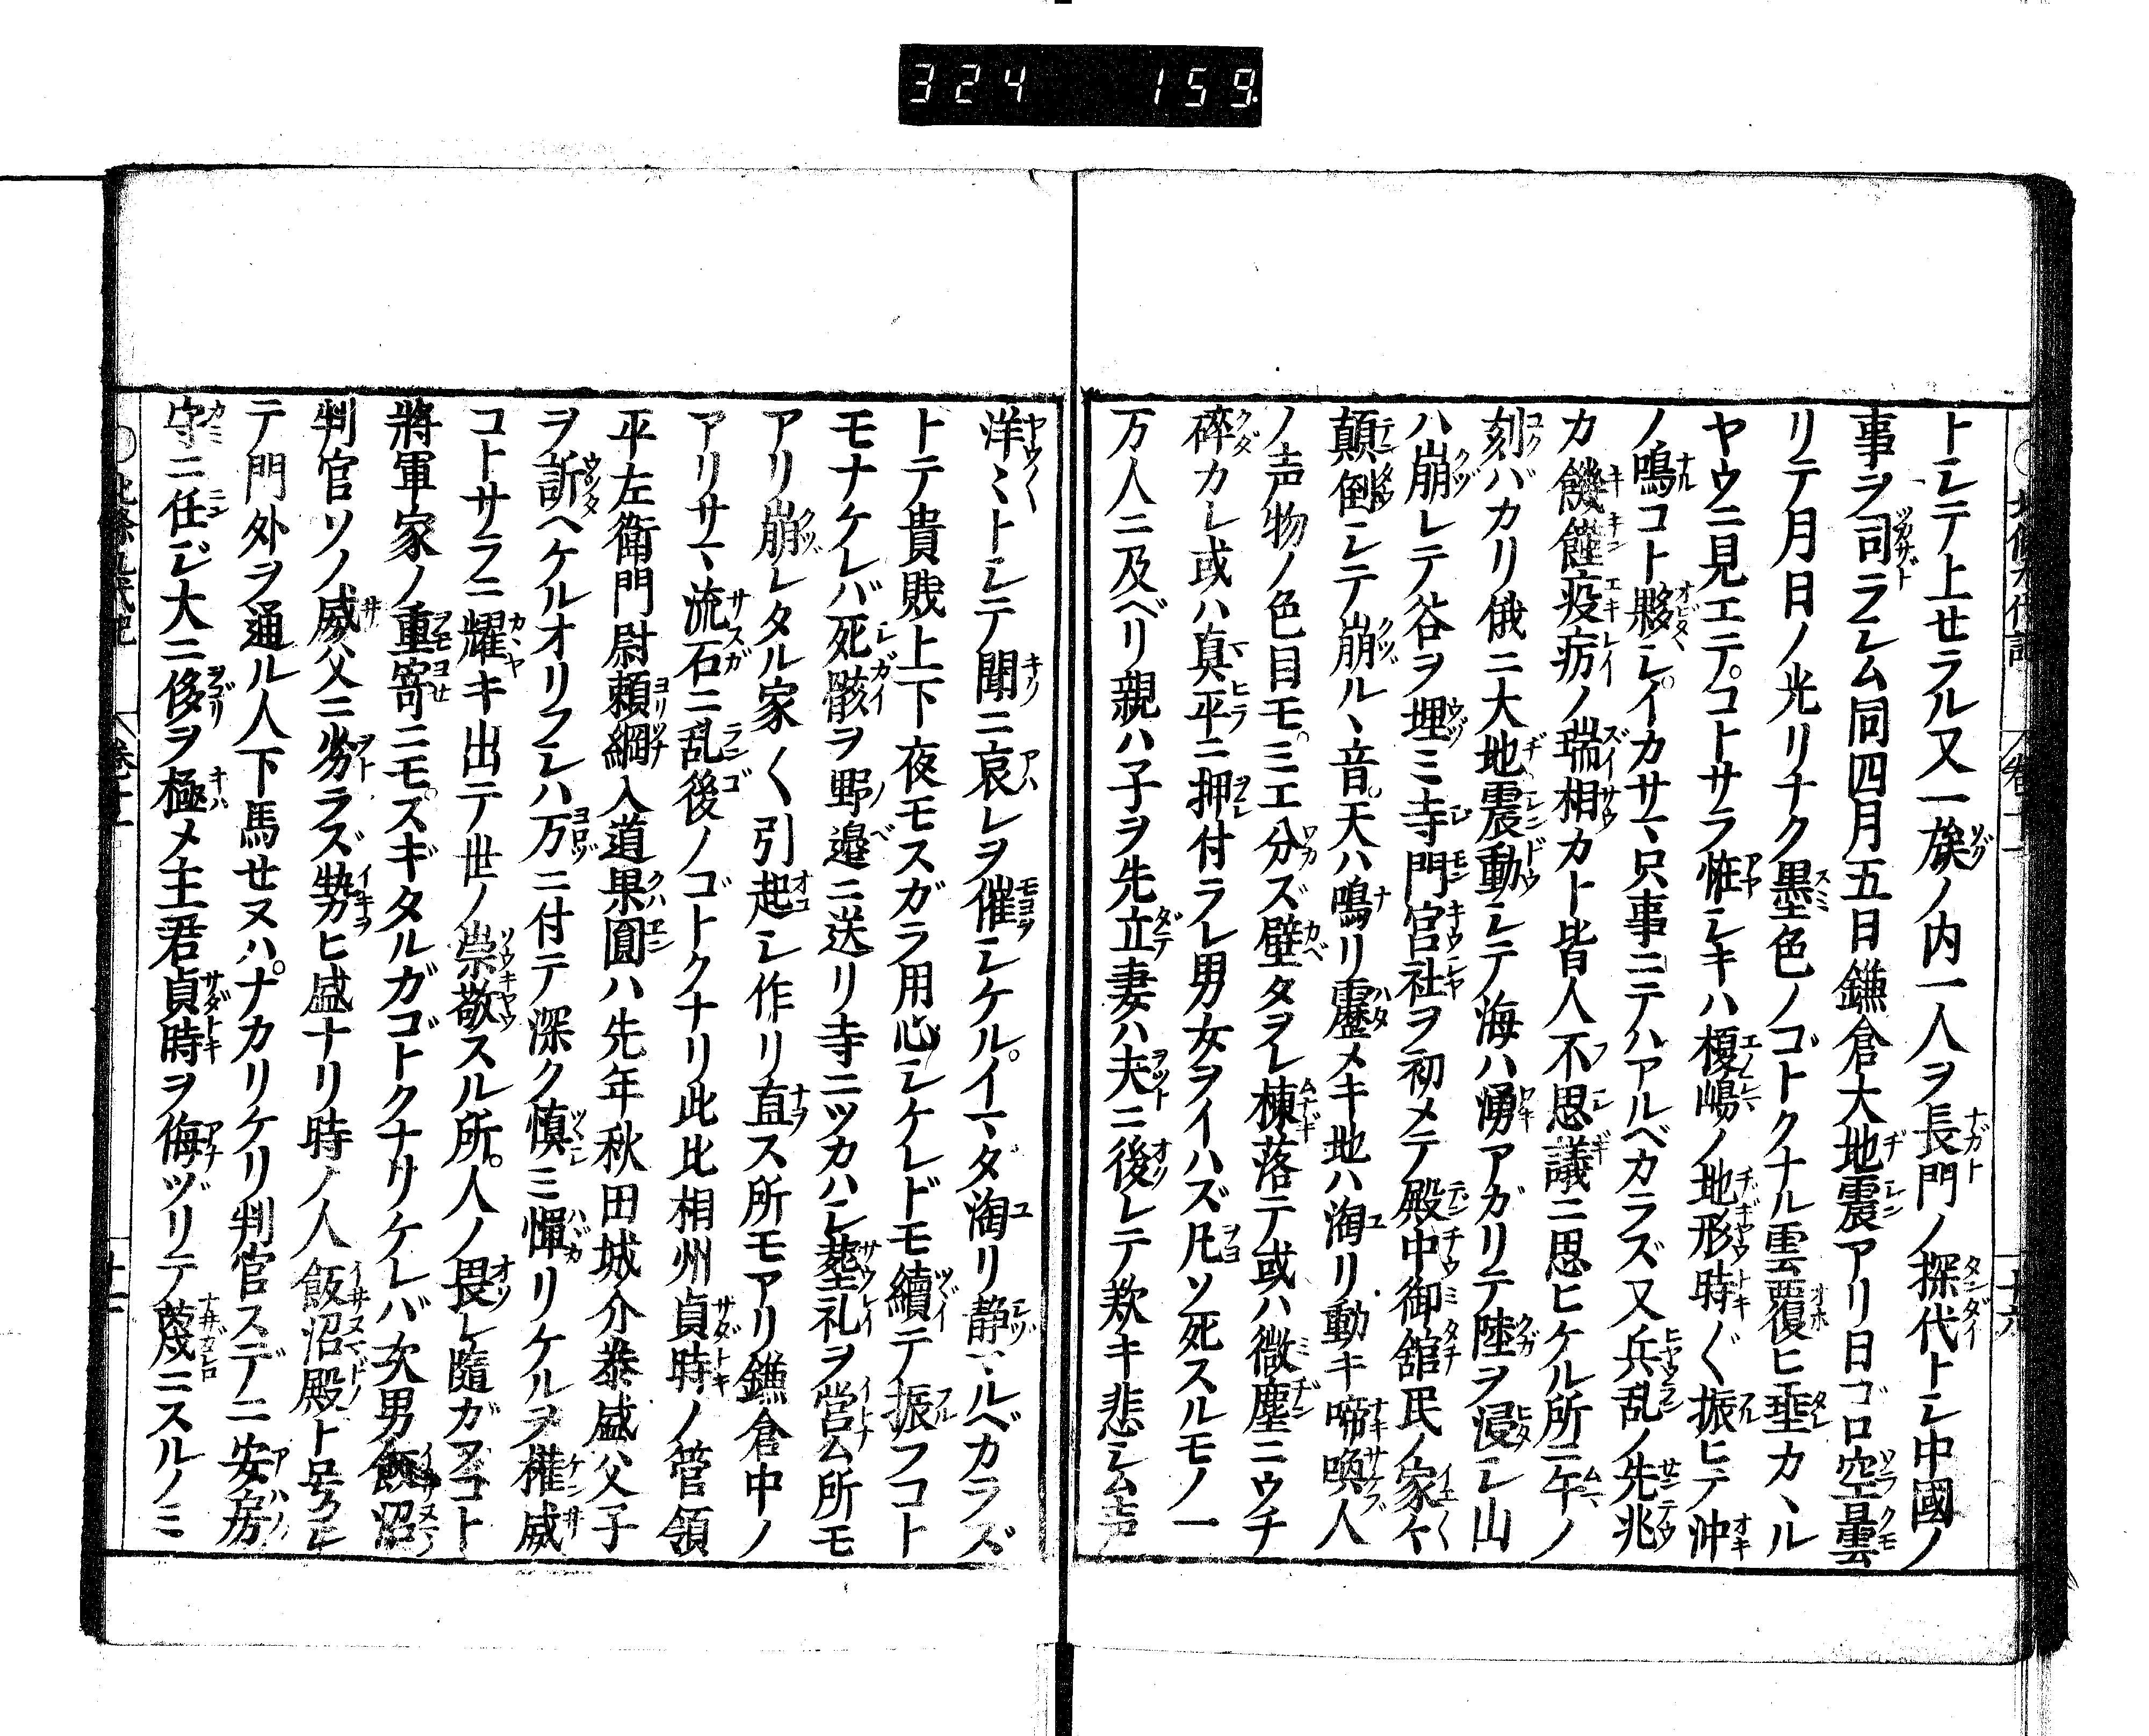 324 159
トシテ上セラル又一族ノ内一人ヲ長門ノ探代トシ中國ノ
事ヲ司ラシム同四月五日鎌倉大地震アリ日ゴロ空曇
リテ月日ノ光リナク墨色ノゴトクナル雲覆ヒ垂カヽル
ヤウニ見エテコトサラ恠シキハ榎嶋ノ地形時〱振ヒテ沖
ノ鳴コト夥シイカサマ只事ニテハアルベカラズ又兵乱ノ先兆
カ饑饉疫疠ノ瑞相カト皆人不思議ニ思ヒケル所ニ午ノ
刻バカリ俄ニ大地震動シテ海ハ湧アガリテ陸ヲ浸シ山
ハ崩レテ谷ヲ埋ミ寺門宮社ヲ初メテ殿中御舘民ノ家々
顛倒シテ崩ルヽ音天ハ鳴リ靂メキ地ハ淘リ動キ啼喚人
ノ声物ノ色目モミエ分ズ壁タヲレ棟落テ或ハ微塵ニウチ
碎カレ或ハ真平ニ押付ラレ男女ヲイハズ凡ソ死スルモノ一
万人ニ及ベリ親ハ子ヲ先立妻ハ夫ニ後レテ歎キ悲シム声
洋ミトシテ聞ニ哀レヲ催シケルイマダ淘リ静マルベカラズ
トテ貴賎上下夜モスガラ用心シケレドモ續テ振フコト
モナケレバ死骸ヲ野邉ニ送リ寺ニツカハシ塟礼ヲ営ム所モ
アリ崩レタル家〱引起シ作リ直ス所モアリ鎌倉中ノ
アリサマ流石ニ乱後ノゴトクナリ此比相州貞時ノ管領
平左衛門尉頼綱入道果圓ハ先年秋田城介泰盛父子
ヲ訴ヘケルオリフシハ万ニ付テ深ク慎ミ憚リケルヲ權威
コトサラニ耀キ出テ世ノ崇敬スル所人ノ畏レ隨ガフコト
將軍家ノ重寄ニモスギタルガゴトクナリケレバ次男飯沼
判官ソノ威父ニ劣ラズ勢ヒ盛ナリ時ノ人飯沼殿ト号シ
テ門外ヲ通ル人下馬セヌハナカリケリ判官スデニ安房
守ニ任ジ大ニ侈ヲ極メ主君貞時ヲ侮ヅリテ蔑ニスルノミ